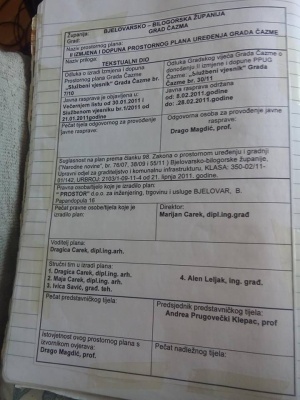 Županija:
Grad:
BJELOVARSKO – BILOGORSKA ŽUPANIJA
GRAD ČAZMA
Naziv prostornog plana:
II IZMJENA I DOPUNA PROSTORNOG PLANA UREĐENJA GRADA ČAZME
Naziv priloga:
TEKSTUALNI DIO
Odluka o izradi Izmjena i dopuna
Prostornog plana Grada Čazme
„Službeni vjesnik“ Grada Čazme br.
7/10
Odluka Gradskog vijeća Grada Čazme o
donošenju II izmjene i dopune PPUG
Čazme „Službeni vjesnik“ Grada
Čazme br. 30/11
Javna rasprava je objavljena u
Večernjem listu od 30.01.2011 i
Službenom vjesniku br.1/2011 od
31.01.2011godine
Javna rasprava održana
od: 8.02.2011.godine
do: .28.02.2011.godine
Pečat tijela odgovornog za provođenje
javne rasprave:
Odgovorna osoba za provođenje javne
rasprave:
Drago Magdić, prof.
Suglasnost na plan prema članku 98. Zakona o prostornom uređenju i gradnji
("Narodne novine", br. 76/07, 38/09 i 55/11 ) Bjelovarsko-bilogorske županije.
Upravni odjel za graditeljstvo i komunalnu infrastrukturu, KLASA: 350-02/11-
01/142, URBROJ: 2103/1-09-11-4 od 21. lipnja 2011. godine.
Pravna osoba/tijelo koje je izradilo plan:
" PROSTOR" d.o.o. za inženjering, trgovinu i usluge BJELOVAR, B.
Papandopula 16
Pečat pravne osobe/tijela koje je
izradilo plan:
Direktor:
Marijan Carek, dipl.ing.građ
Voditelj plana:
Dragica Carek, dipl.ing.arh.
Stručni tim u izradi plana:
1. Dragica Carek, dipl.ing.arh.
2. Maja Carek, dipl.ing.arh.
3. Ivica Savić, građ. teh.
4. Alen Leljak, ing. građ.
Pečat predstavničkog tijela:
Predsjednik predstavničkog tijela:
Andrea Prugovečki Klepac, prof
Istovjetnost ovog prostornog plana s
izvornikom ovjerava:
Drago Magdić, prof.
Pečat nadležnog tijela: